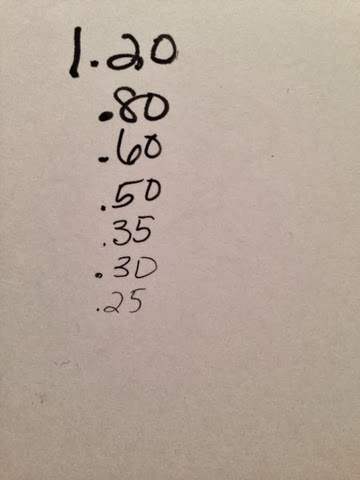 1.20
.80
.60
.50
.35
.30
.25